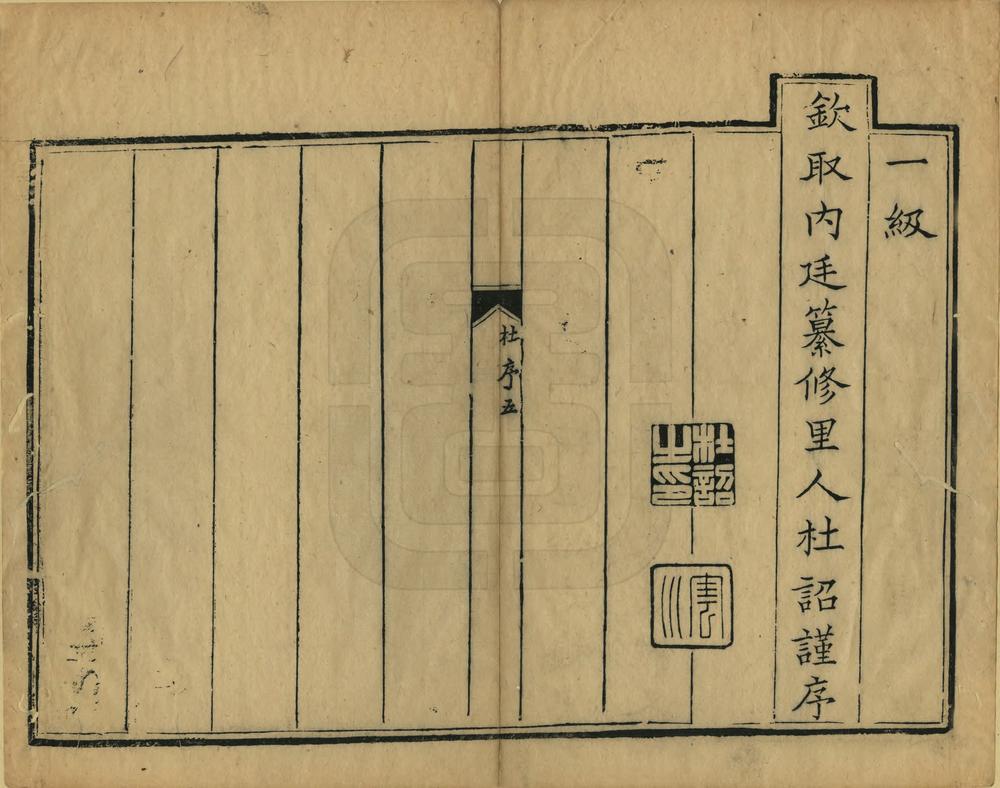 一級
欽取內廷纂修里人杜詔謹序
杜詔之印
雲川
杜序 五